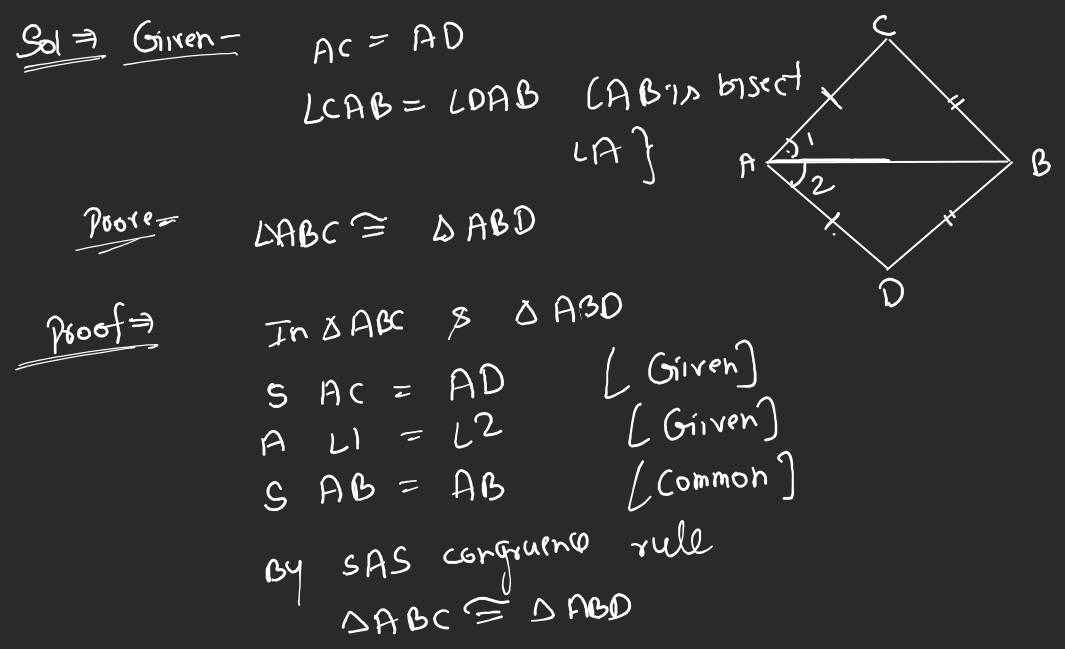 Sol ⇒ Given -
AC = AD
∠CAB = ∠DAB {AB is bisect
∠A}
Prove =
△ABC ≅ △ABD
Proof ⇒
In △ABC & △ABD
S AC = AD [Given]
A ∠1 = ∠2 [Given]
S AB = AB [Common]
By SAS congruence rule
△ABC ≅ △ABD
C
1
A
B
2
D